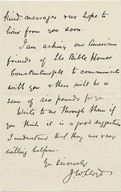 kind messages & we hope to
hear from you soon
I am asking our American
friends of the Bible House
Constantinople to communicate
with you & there will be a
sum of six pounds for you.
Write to me through them if
you think it is a good suggestion
I understand that they are very
willing helpers.
Yrs sincerely